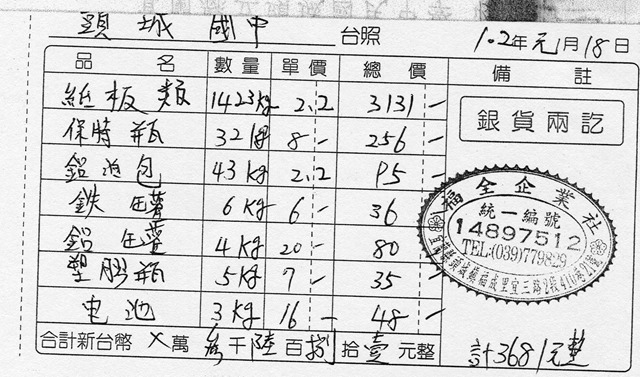 頭城國中 台照 102年元1月18日
品名 數量 單價 總價 備註
紙板類 1423kg 2.2 3131-
保特瓶 32kg 8- 256-
鋁泊包 43kg 2.2 95-
鉄罐 6kg 6- 36
鋁罐 4kg 20- 80
塑膠瓶 5kg 7- 35
电池 3kg 16- 48-
合計新台幣 X萬叁千陸百捌拾壹元整
銀貨兩訖
福全企業社
統一編號
14897512
TEL:(039)779829
計3681元整